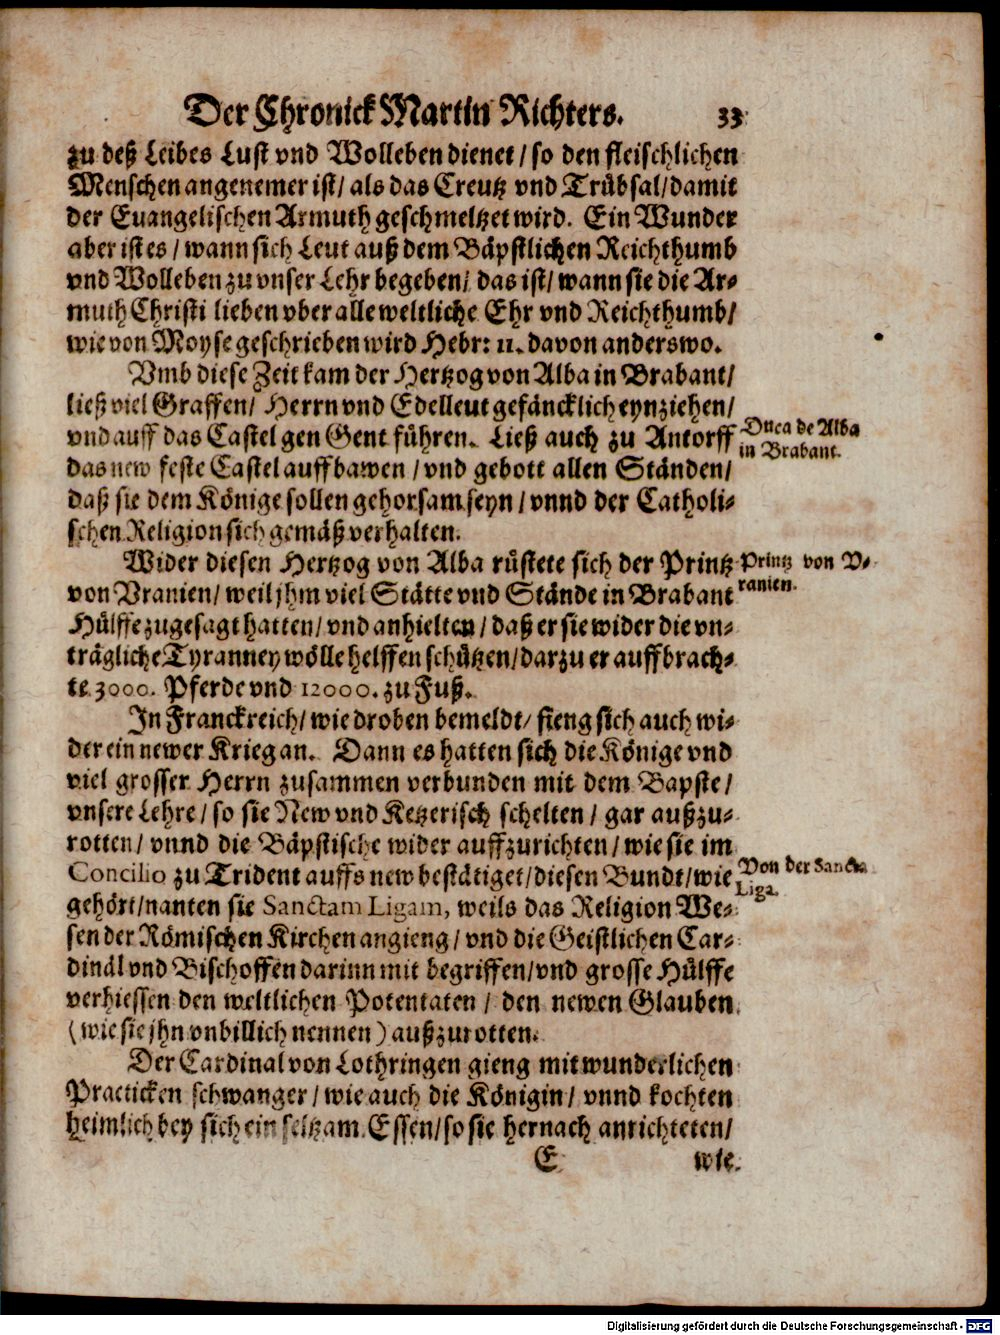 Der Chronick Martin Richters. 33
zu deß Leibes Lust vnd Wolleben dienet / so den fleischlichen
Menschen angenemer ist / als das Creutz vnd Trübsal / damit
der Euangelischen Armuth geschmeltzet wird. Ein Wunder
aber ist es / wann sich Leut auß dem Bäpstlichen Reichthumb
vnd Wolleben zu vnser Lehr begeben / das ist / wann sie die Ar-
muth Christi lieben vber alle weltliche Ehr vnd Reichthumb /
wie von Moyse geschrieben wird Hebr: 11. davon anderswo.
Vmb diese Zeit kam der Hertzog von Alba in Brabant /
ließ viel Graffen / Herrn vnd Edelleut gefäncklich eynziehen /
vnd auff das Castel gen Gent führen. Ließ auch zu Antorff
das new feste Castel auffbawen / vnd gebott allen Ständen /
daß sie dem Könige sollen gehorsam seyn / vnnd der Catholi-
schen Religion sich gemäß verhalten.
Duca de Alba
in Brabant.
Wider diesen Hertzog von Alba rüstete sich der Printz
von Vranien / weil jhm viel Stätte vnd Stände in Brabant
Hülffe zugesagt hatten / vnd anhielten / daß er sie wider die vn-
trägliche Tyranney wölle helffen schützen / darzu er auffbrach-
te 3000. Pferde vnd 12000. zu Fuß.
Printz von V-
ranien.
In Franckreich / wie droben bemeldt / fieng sich auch wi-
der ein newer Krieg an. Dann es hatten sich die Könige vnd
viel grosser Herrn zusammen verbunden mit dem Bapste /
vnsere Lehre / so sie New vnd Ketzerisch schelten / gar außzu-
rotten / vnnd die Bäpstische wider auffzurichten / wie sie im
Concilio zu Trident auffs new bestätiget / diesen Bundt / wie
gehört / nanten sie Sanctam Ligam, weils das Religion We-
sen der Römischen Kirchen angieng / vnd die Geistlichen Car-
dinäl vnd Bischoffen darinn mit begriffen / vnd grosse Hülffe
verhiessen den weltlichen Potentaten / den newen Glauben
(wie sie jhn vnbillich nennen) außzurotten.
Von der Sancta
Liga.
Der Cardinal von Lothringen gieng mit wunderlichen
Practicken schwanger / wie auch die Königin / vnnd kochten
heimlich bey sich ein seltzam Essen / so sie hernach anrichteten /
E wie
Digitalisierung gefördert durch die Deutsche Forschungsgemeinschaft - DFG